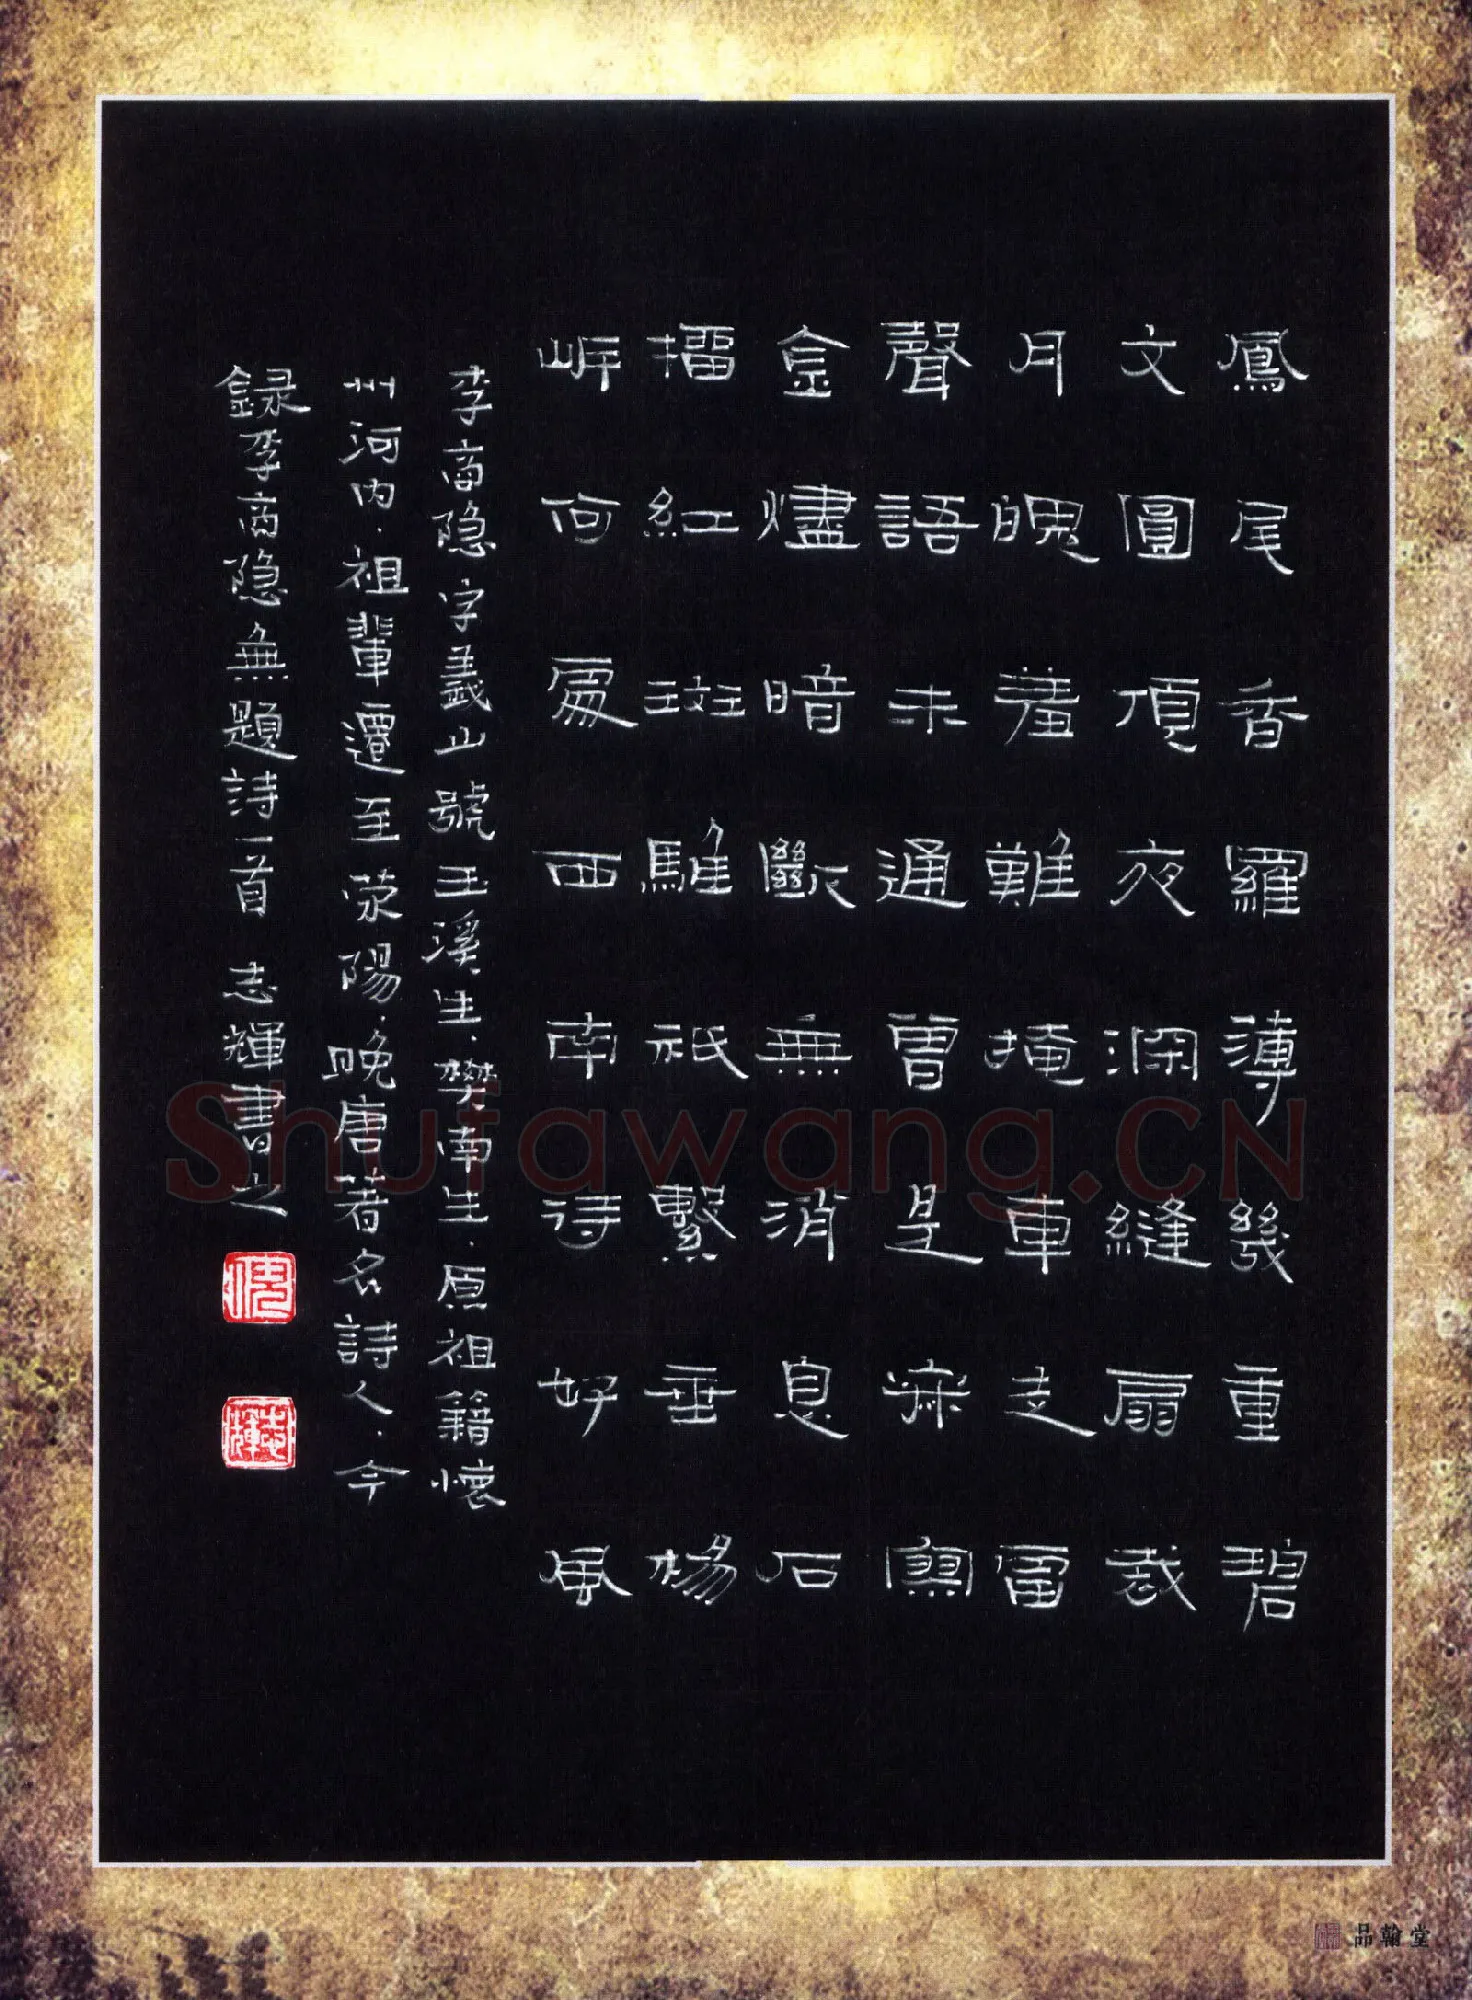 鳳尾香羅薄幾重碧
文圓頂夜深縫扇裁
月魄羞難掩車走雷
聲語未通曾是寂寥
金燼暗斷無消息石
榴紅斑騅祇繫垂楊
岸何處西南待好風
李商隐字義山號玉溪生、樊南生、原祖籍懷
州河内、祖輩遷至滎陽、晚唐著名詩人、今
録李商隐無題詩一首 志輝書之
Shufawang.CN
品翰堂